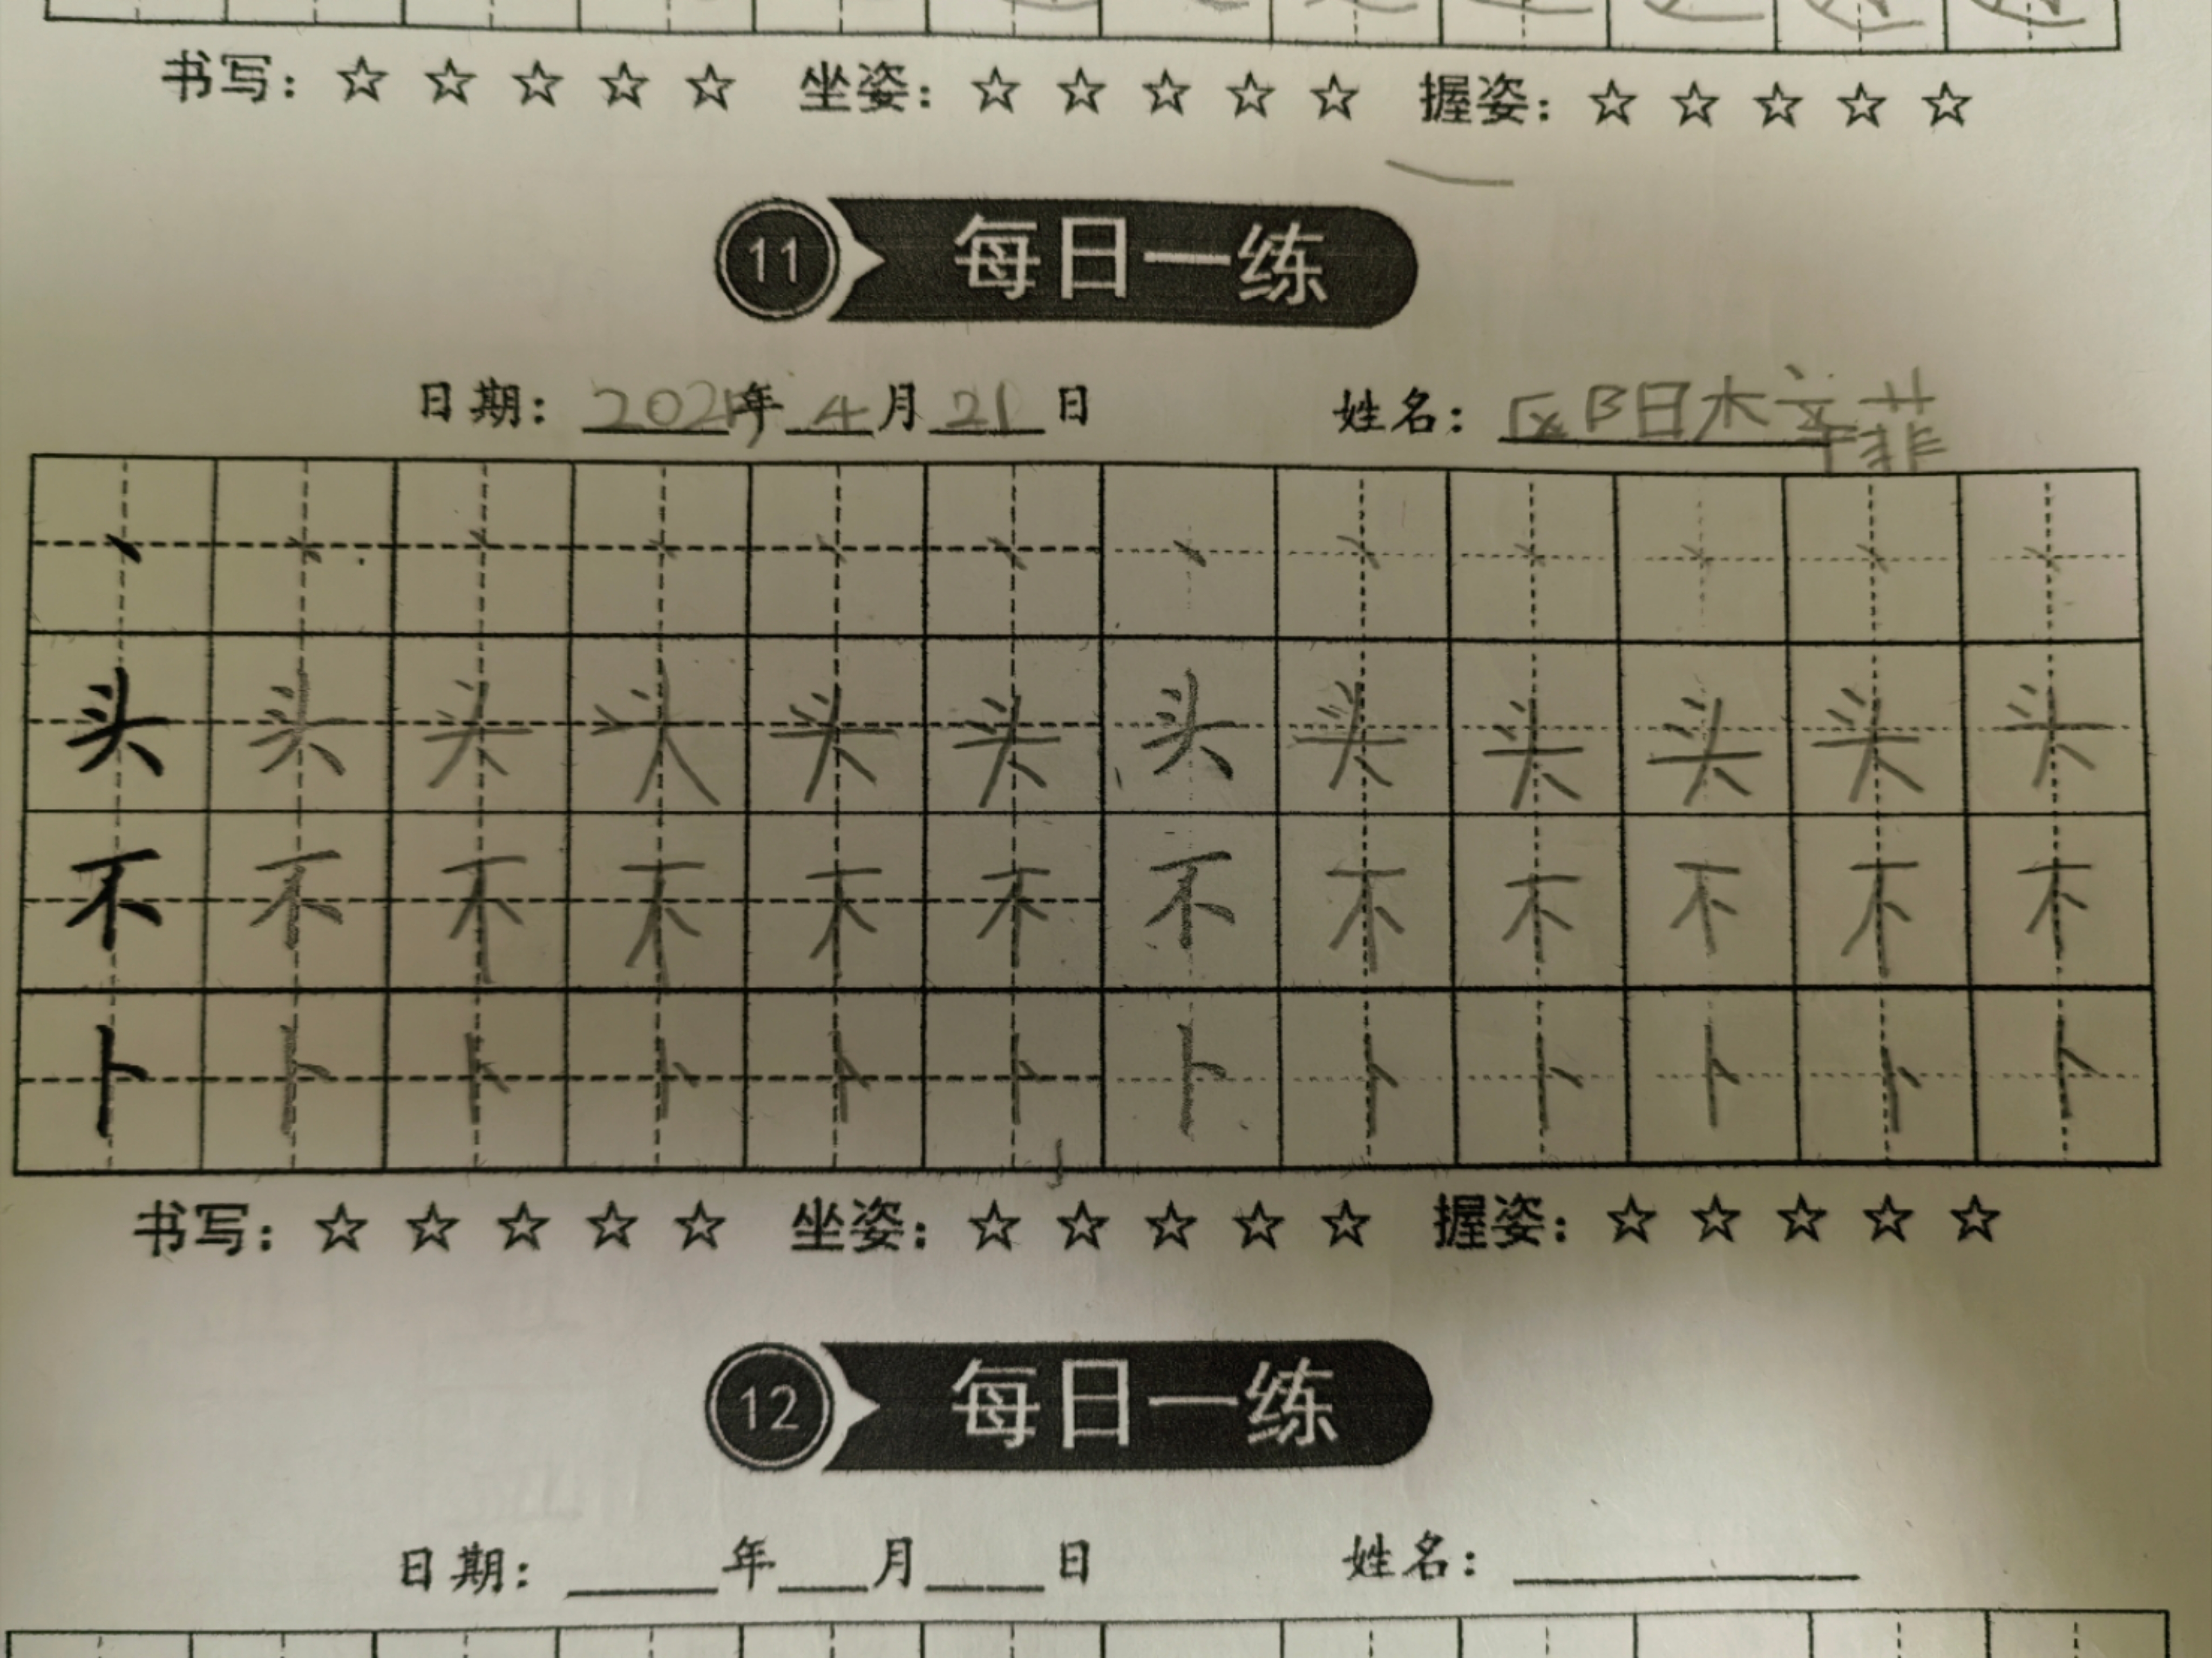 书写：☆ ☆ ☆ ☆ ☆ 坐姿：☆ ☆ ☆ ☆ ☆ 握姿：☆ ☆ ☆ ☆ ☆
11 每日一练
日期：年 4 月 21 日 姓名：
丶 丶 丶 丶 丶 丶 丶 丶 丶 丶 丶 丶
头 头 头 头 头 头 头 头 头 头 头 头
不 不 不 不 不 不 不 不 不 不 不 不
卜 卜 卜 卜 卜 卜 卜 卜 卜 卜 卜 卜
书写：☆ ☆ ☆ ☆ ☆ 坐姿：☆ ☆ ☆ ☆ ☆ 握姿：☆ ☆ ☆ ☆ ☆
12 每日一练
日期：____年___月____日 姓名：________